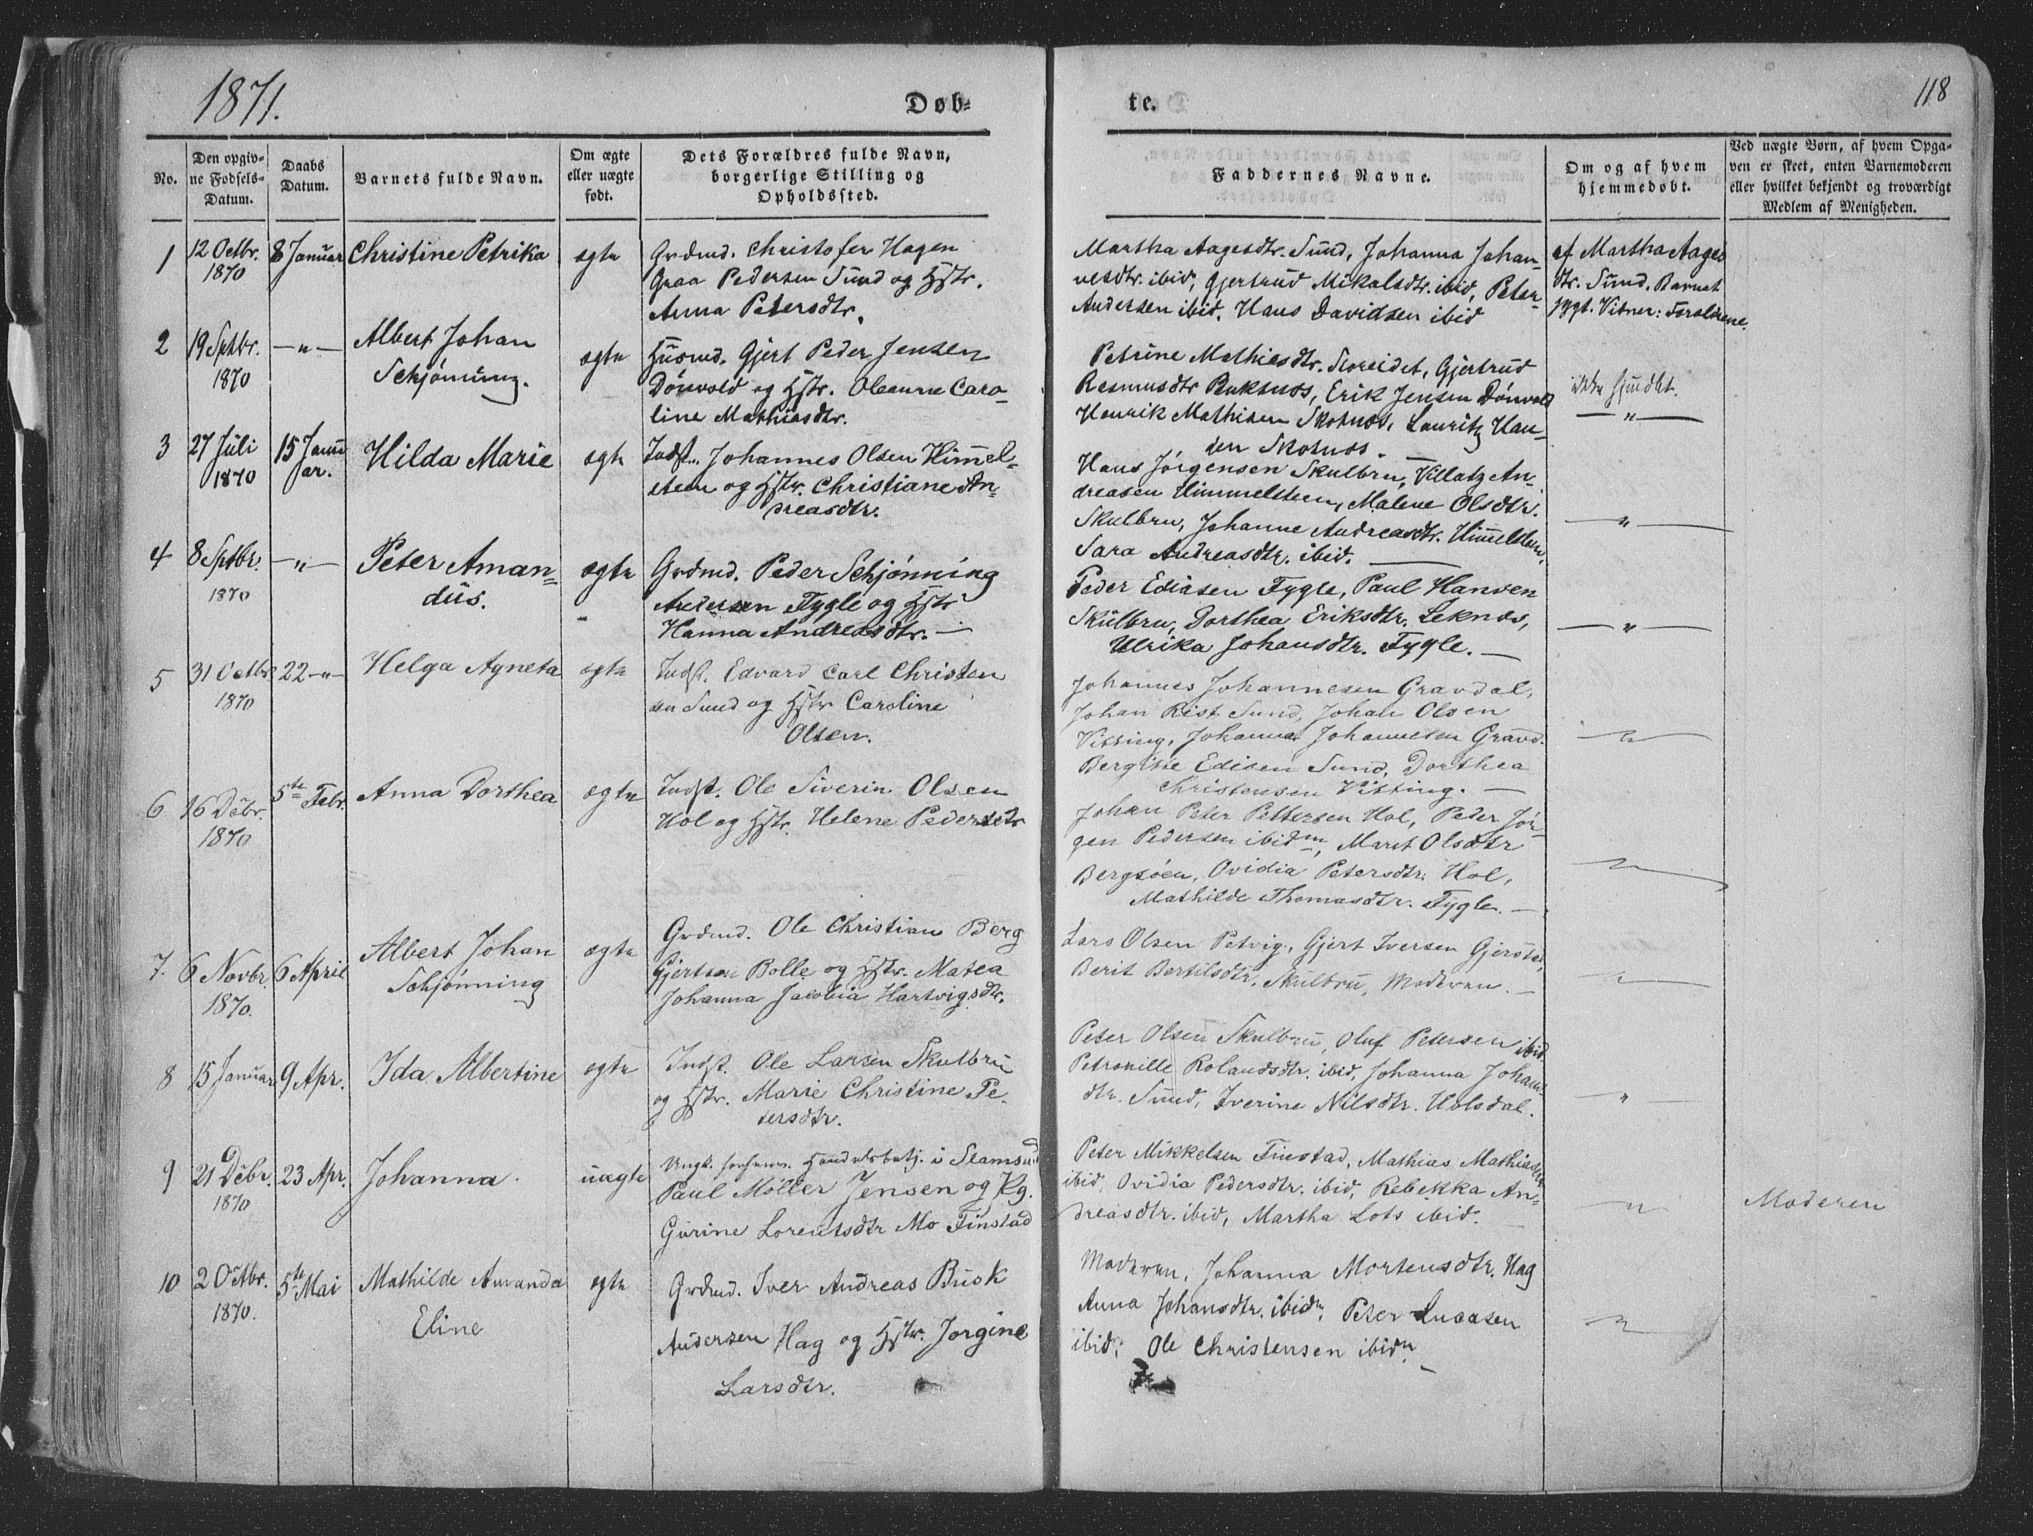 1871.
Døb-
te.
118
No.
Den opgiv-
ne Fødsels-
Datum.
Daabs
Datum.
Barnets fulde Navn.
Om ægte
eller uægte
født.
Dets Forældres fulde Navn,
borgerlige Stilling og
Opholdssted.
Faddernes Navne.
Om og af hvem
hjemmedøbt.
Ved uægte Børn, af hvem Opga-
ven er skeet, enten Barnemoderen
eller hvilket bekjendt og troværdigt
Medlem af Menigheden.
1
12 Octbr.
1870
8 Januar
Christine Petrika
ægte
Grdmd. Christofer Hagen
Graa Pedersen Sund og Hstr.
Anna Petersdtr.
Martha Aagesdtr. Sund, Johanna Johan-
nesdtr. ibid, Gjertrud Mikalsdtr. ibid, Peter
Andersen ibid, Hans Davidsen ibid
af Martha Aages
dtr. Sund. Barnet
sygt. Vitner: Forældrene.
2
19 Septbr.
1870
—"—
Albert Johan
Schjønning.
ægte
Husmd. Gjert Peder Jensen
Dönvold og Hstr. Oleanne Caro-
line Mathiasdtr.
Petrine Mathiesdtr. Storeidet, Gjertrud
Rasmusdtr Buksnæs, Erik Jensen Dönvold
Henrik Mathisen Skotnæs, Lauritz Han-
den Skotnæs.
ikke hjmdbt.
—"—
3
27 Juli
1870
15 Janu
ar.
Hilda Marie
ægte
Indst. Johannes Olsen Himel-
steen og Hstr. Christiane An-
dreasdtr.
Hans Jørgensen Skulbru, Villatz An-
dreasen Himmelsteen, Malene Olsdtr.
Skulbru, Johanne Andreasdtr. Himelsten,
Sara Andreasdtr. ibid. —
—"—
4
8 Septbr.
1870
—"—
Peter Aman-
dus.
ægte
Grdmd. Peder Schjønning
Andersen Fygle og Hstr
Hanna Andreasdtr. —
Peder Ediasen Fygle, Paul Hansen
Skulbru, Dorthea Eriksdtr. Leknes,
Ulrika Johansdtr. Fygle. —
—"—
5
31 Octbr
1870
22 —"—
Helga Agneta
ægte
Indst. Edvard Carl Christen
sen Sund og Hstr Caroline
Olsen.
Johannes Johannesen Gravdal,
Johan Rist Sund, Johan Olsen
Vitting, Johanna Johannesen Gravd.
Bergitte Edisen Sund, Dorthea
Christensen Vitting. —
—"—
6
16 Decbr.
1870
5te Febr.
Anna Dorthea
ægte
Indst. Ole Siverin Olsen
Hol og Hstr. Helene Pedersdtr
Johan Peter Pettersen Hol, Peder Jör-
gen Pedersen ibidm, Maret Olsdtr
Bergsøen, Ovidia Petersdtr. Hol,
Mathilde Thomasdtr. Fygle. —
—"—
7.
6 Novbr.
1870.
6 April
Albert Johan
Schjønning
ægte
Grdmd. Ole Christian Berg
Gjertsen Bolle og Hstr. Matea
Johanna Jacobia Hartvigsdtr.
Lars Olsen Petvig, Gjert Iversen Gjerstad,
Berit Bertilsdtr. Skulbru, Moderen. —
—"—
8
15 Januar
9 Apr.
Ida Albertine
ægte
Indst. Ole Larsen Skulbru
og Hstr. Marie Christine Pe-
tersdtr.
Peter Olsen Skulbru, Oluf Petersen ibid
Petronille Rolandsdtr. ibid, Johanna Johans
dtr. Sund, Iverine Nilsdtr. Holsdal.
—"—
9
21 Decbr.
1870
23 Apr.
Johanna.
uægte
Ungk. Handelsbetj. i Stamsund
Paul Møller Jensen og Pg.
Gurine Lorentsdtr Mo Finstad
Peter Mikkelsen Finstad, Mathias Mathiasen
ibid, Ovidia Pedersdtr. ibid, Rebekka An-
dreasdtr. ibid, Martha Lots ibid.
—"—
Moderen
10
2 Octbr.
1870.
5te Mai
Mathilde Amanda
Eline
ægte
Grdmd. Iver Andreas Busk
Andersen Hag og Hstr. Jorgine
Larsdtr.
Moderen, Johanna Mortensdtr. Hag
Anna Johansdtr. ibidm, Peter Lucasen
ibid, Ole Christensen ibidm
—"—